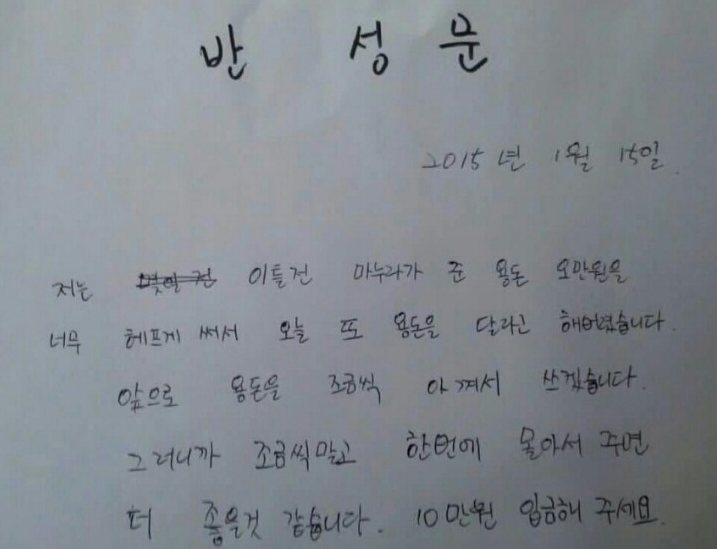 반 성 문
2015 년 1월 15일.
저는 몇일 전 이틀전 마누라가 준 용돈 오만원을
너무 헤프게 써서 오늘 또 용돈을 달라고 해버렸습니다.
앞으로 용돈을 조금씩 아껴서 쓰겠습니다.
그러니까 조금씩말고 한번에 몰아서 주면
더 좋을것 같습니다. 10만원 입금해 주세요.